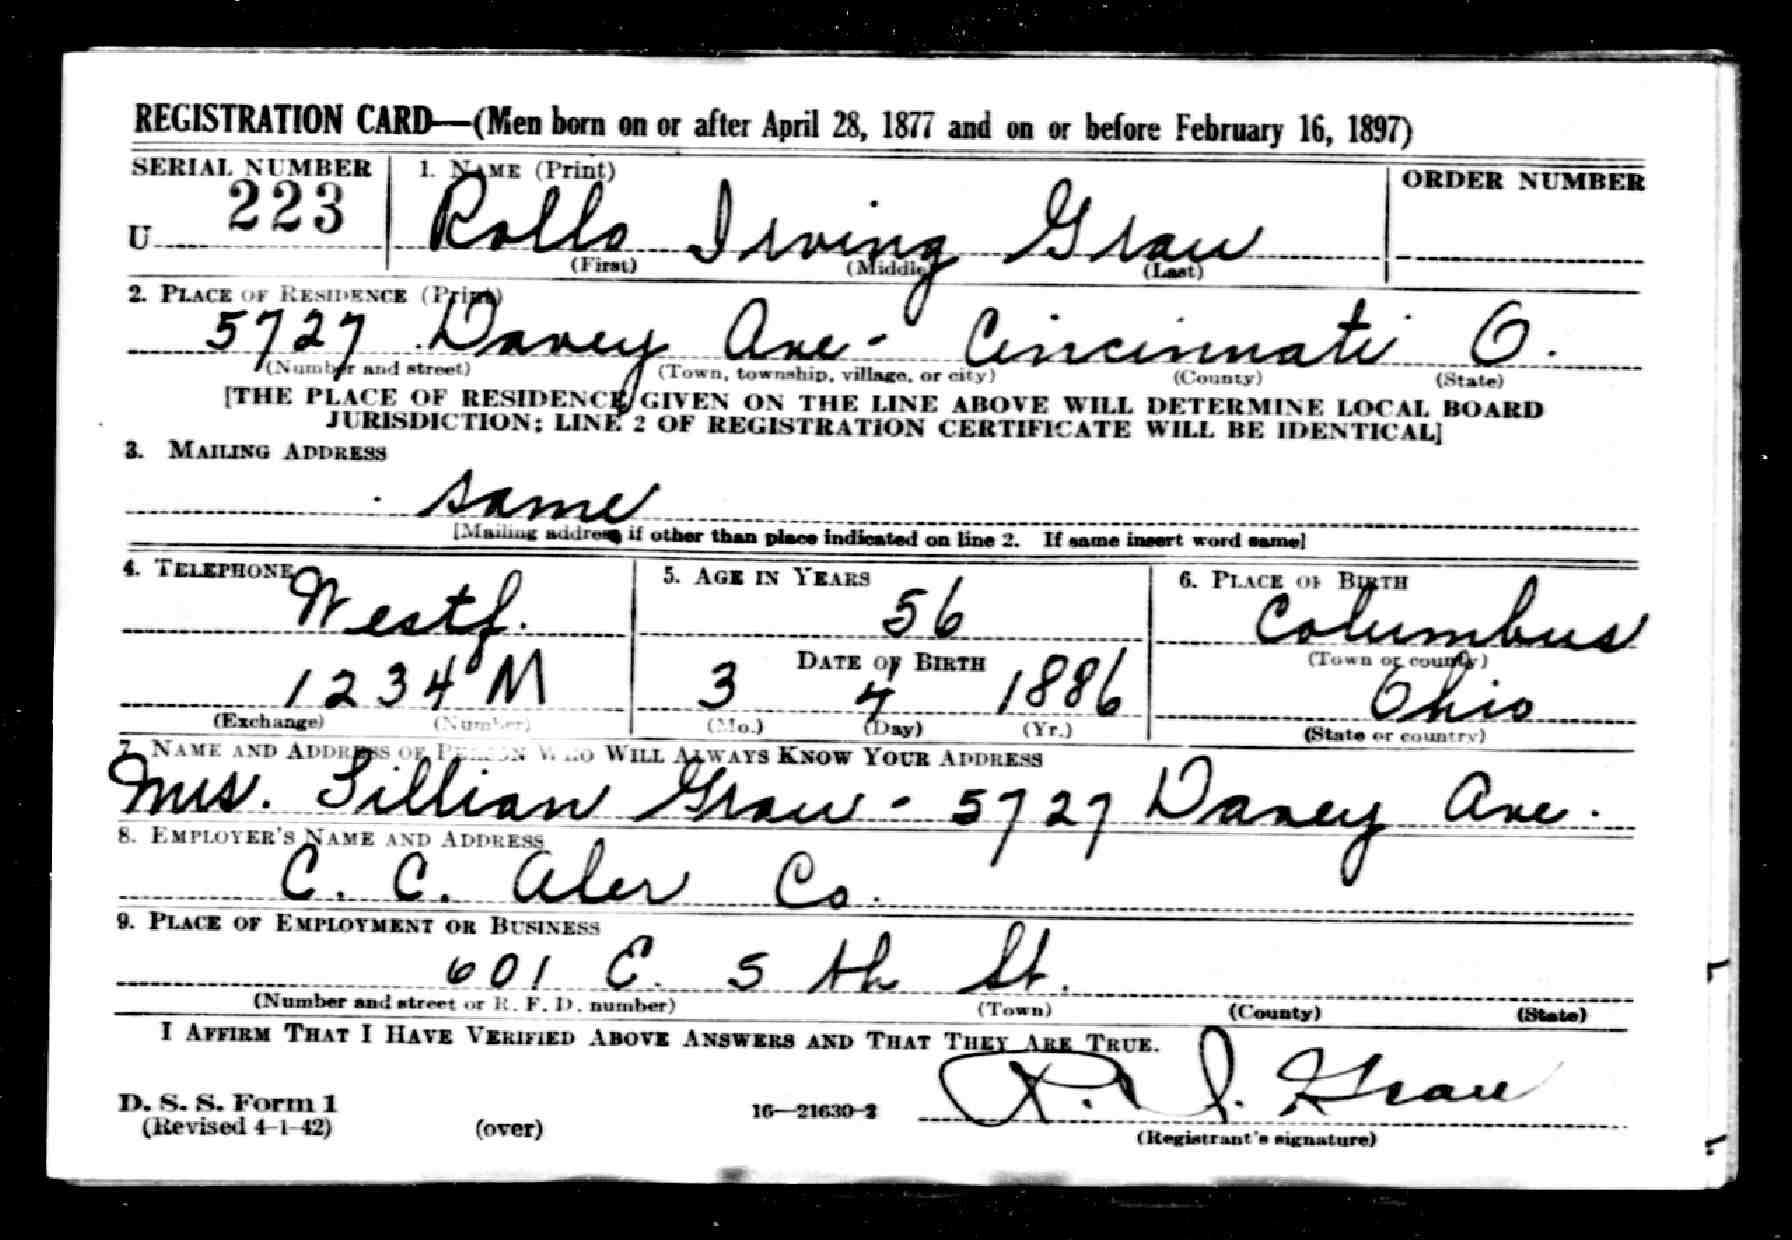 REGISTRATION CARD—(Men born on or after April 28, 1877 and on or before February 16, 1897)
SERIAL NUMBER 1. NAME (Print) ORDER NUMBER
U 223 Rollo Irving Grau
(First) (Middle) (Last)
2. PLACE OF RESIDENCE (Print)
5727 Davey Ave - Cincinnati O.
(Number and street) (Town, township, village, or city) (County) (State)
[THE PLACE OF RESIDENCE GIVEN ON THE LINE ABOVE WILL DETERMINE LOCAL BOARD
JURISDICTION; LINE 2 OF REGISTRATION CERTIFICATE WILL BE IDENTICAL]
3. MAILING ADDRESS
same
[Mailing address if other than place indicated on line 2. If same insert word same]
4. TELEPHONE 5. AGE IN YEARS 6. PLACE OF BIRTH
Westf. 56 Columbus
DATE OF BIRTH (Town or county)
1234 M 3 7 1886 Ohio
(Exchange) (Number) (Mo.) (Day) (Yr.) (State or country)
7. NAME AND ADDRESS OF PERSON WHO WILL ALWAYS KNOW YOUR ADDRESS
Mrs. Lillian Grau - 5727 Davey Ave.
8. EMPLOYER'S NAME AND ADDRESS
C. C. Aler Co.
9. PLACE OF EMPLOYMENT OR BUSINESS
601 E. 5 th St.
(Number and street or R. F. D. number) (Town) (County) (State)
I AFFIRM THAT I HAVE VERIFIED ABOVE ANSWERS AND THAT THEY ARE TRUE.
R. I. Grau
D. S. S. Form 1
(Revised 4-1-42) (over) 16—21630-2 (Registrant's signature)